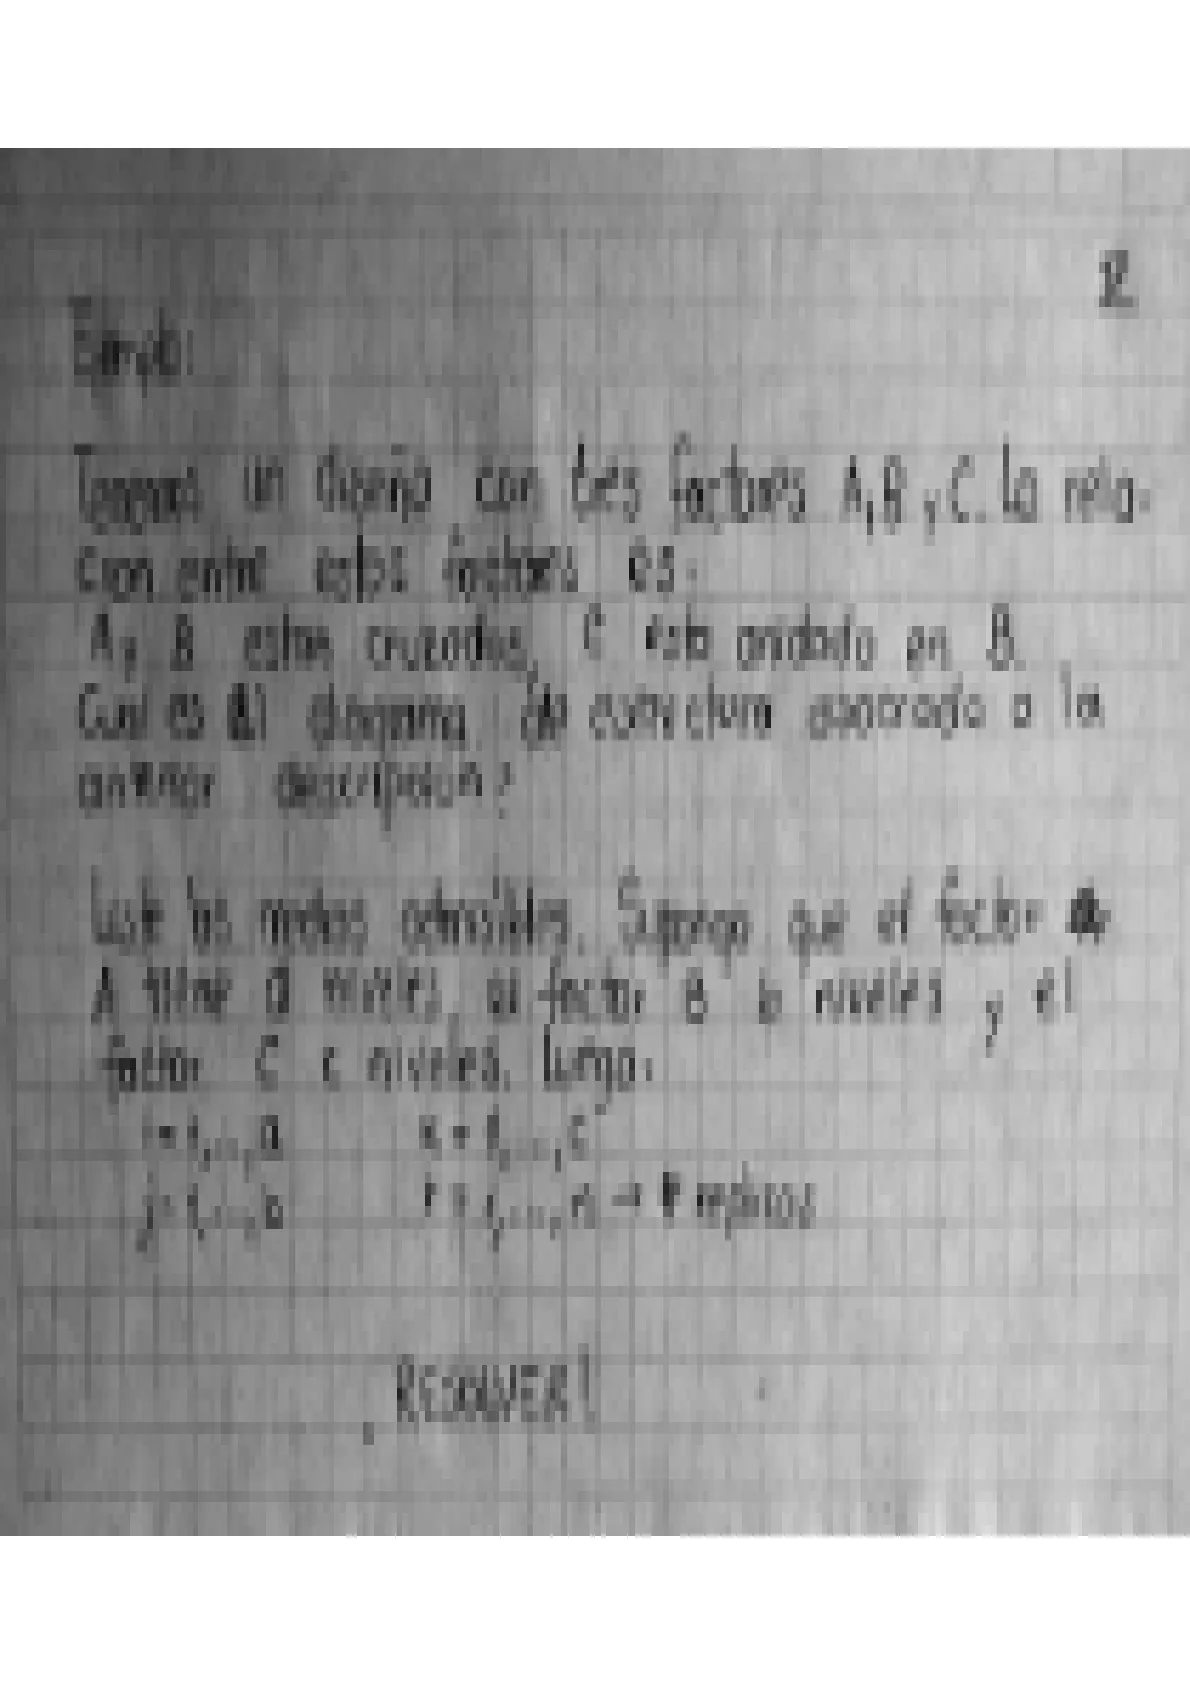 Ejemplo:
Tenemos un diseño con tres factores A, B y C. La rela-
cion entre estos factores es:
A y B estan cruzados, C esta anidado en B.
Cual es el diagrama de estructura asociado a la
anterior descripcion?
Liste las medias admisibles. Suponga que el factor
A tiene a niveles, el factor B b niveles y el
factor C c niveles. Luego:
i = 1,...,a k = 1,...,c
j = 1,...,b r = 1,...,n → # replicas
RESOLVER!